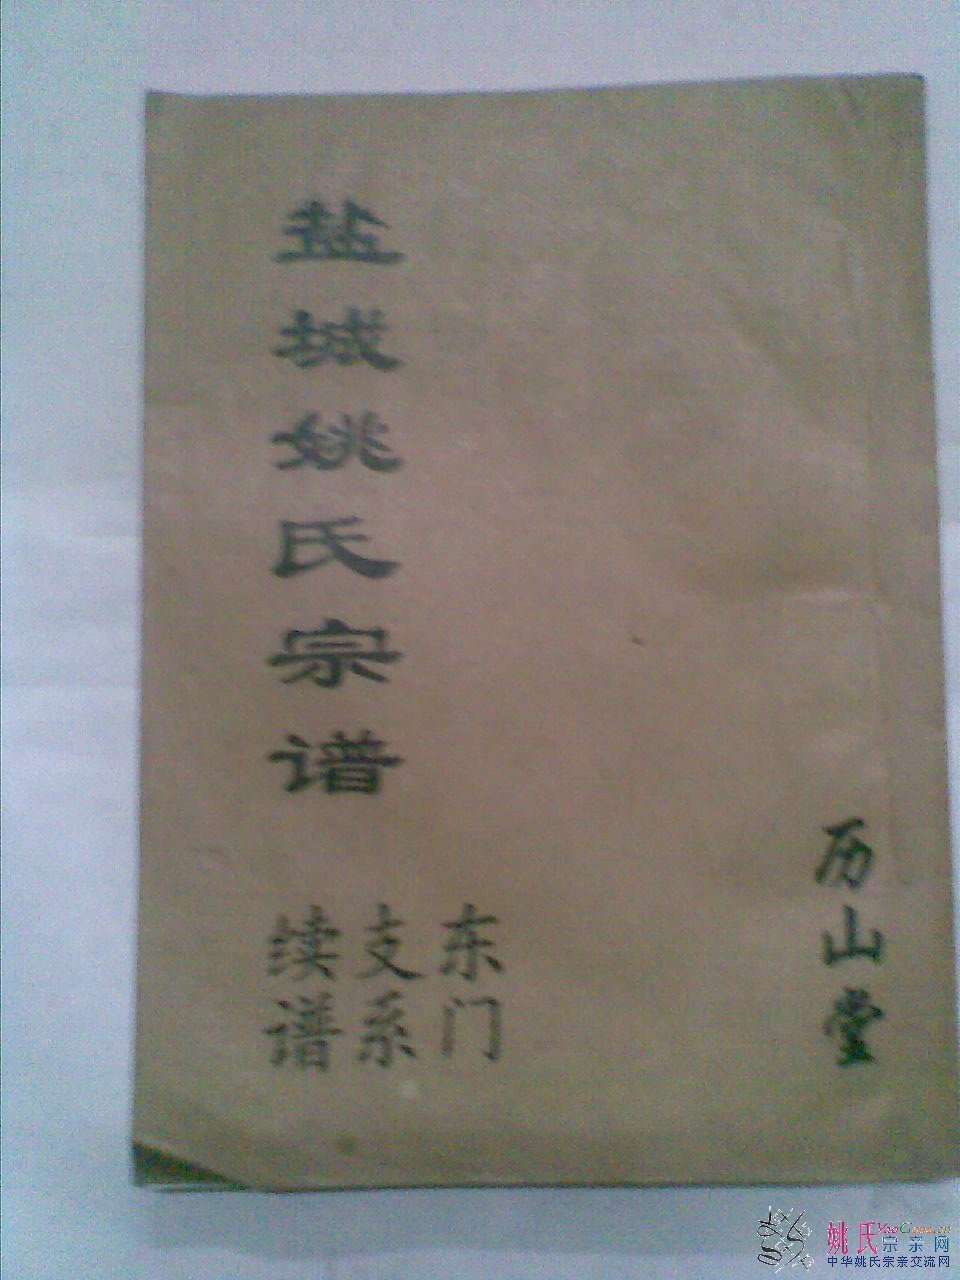 历山堂
东门
支系
续谱
盐城姚氏宗谱
姚氏宗亲网
中华姚氏宗亲交流网